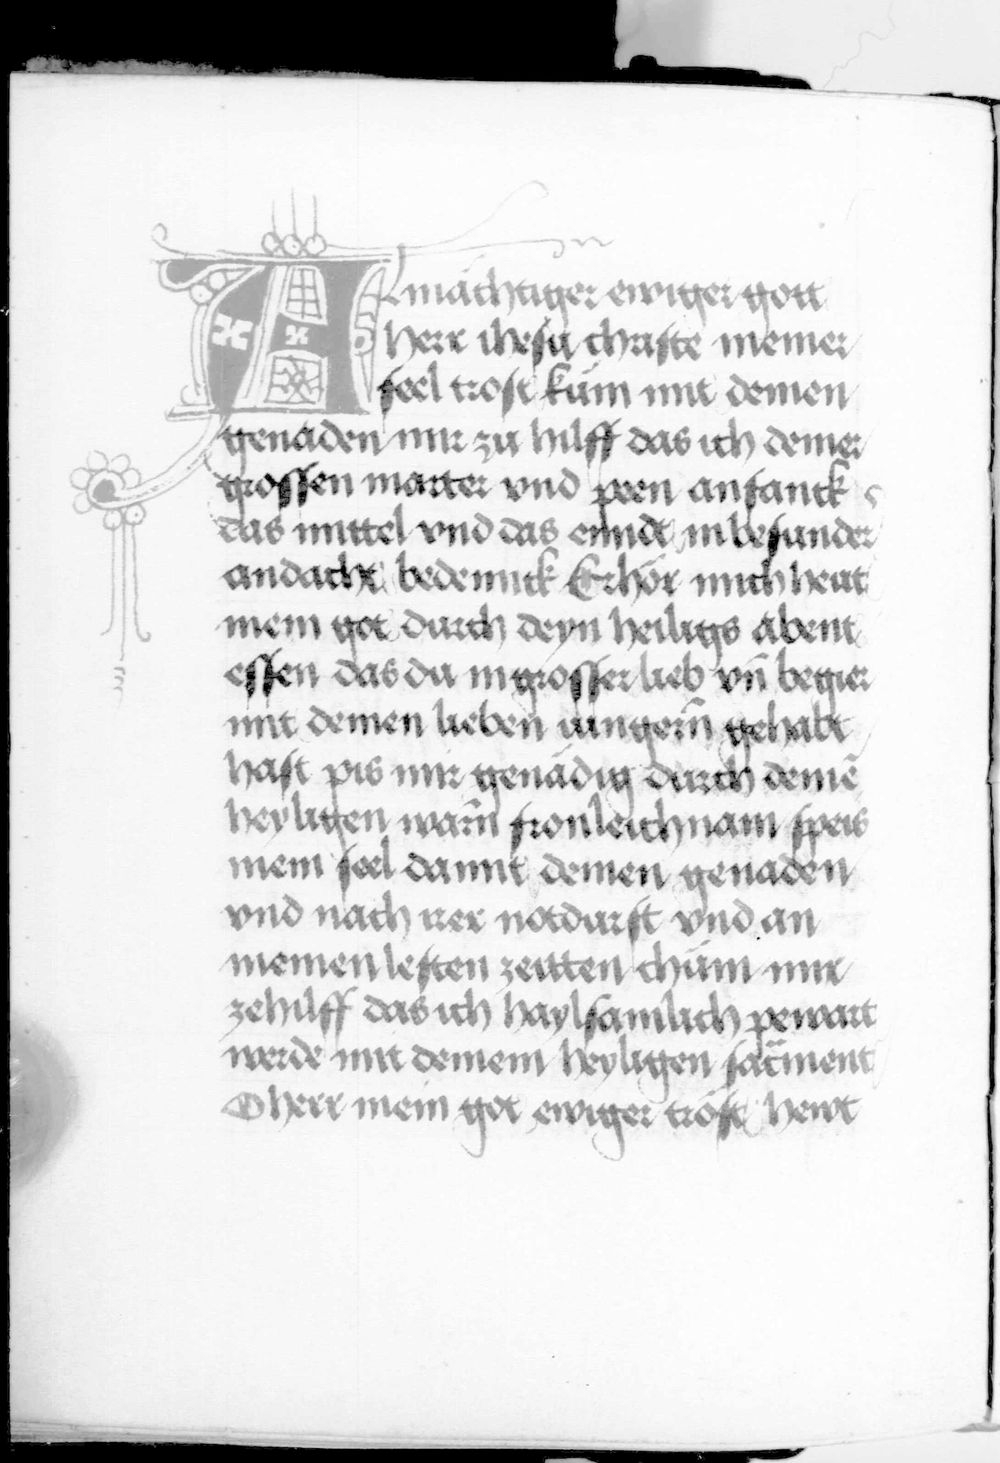 Almächtiger ewiger gott
herr ihesu christe meiner
seel trost kům mit deinen
genaden mir zu hilff das ich deiner
grossen marter vnd peen anfanck
das mittel vnd das ennde in besunder
andacht bedennck Erhör mich heut
mein got durch deyn heiligs abent
essen das du in grosser lieb vn̄ begier
mit deinen lieben iungern̄ gehabt
hast pis mir genädig durch deinē
heyligen warn̄ fronleichnam speis
mein seel da mit deinen genaden
vnd nach irer notdurft vnd an
meinen lesten zeitten chům mir
zehilff das ich haylsamlich pewart
werde mit deinem heyligen sacr̄ment
O herr mein got ewiger tröst hewt